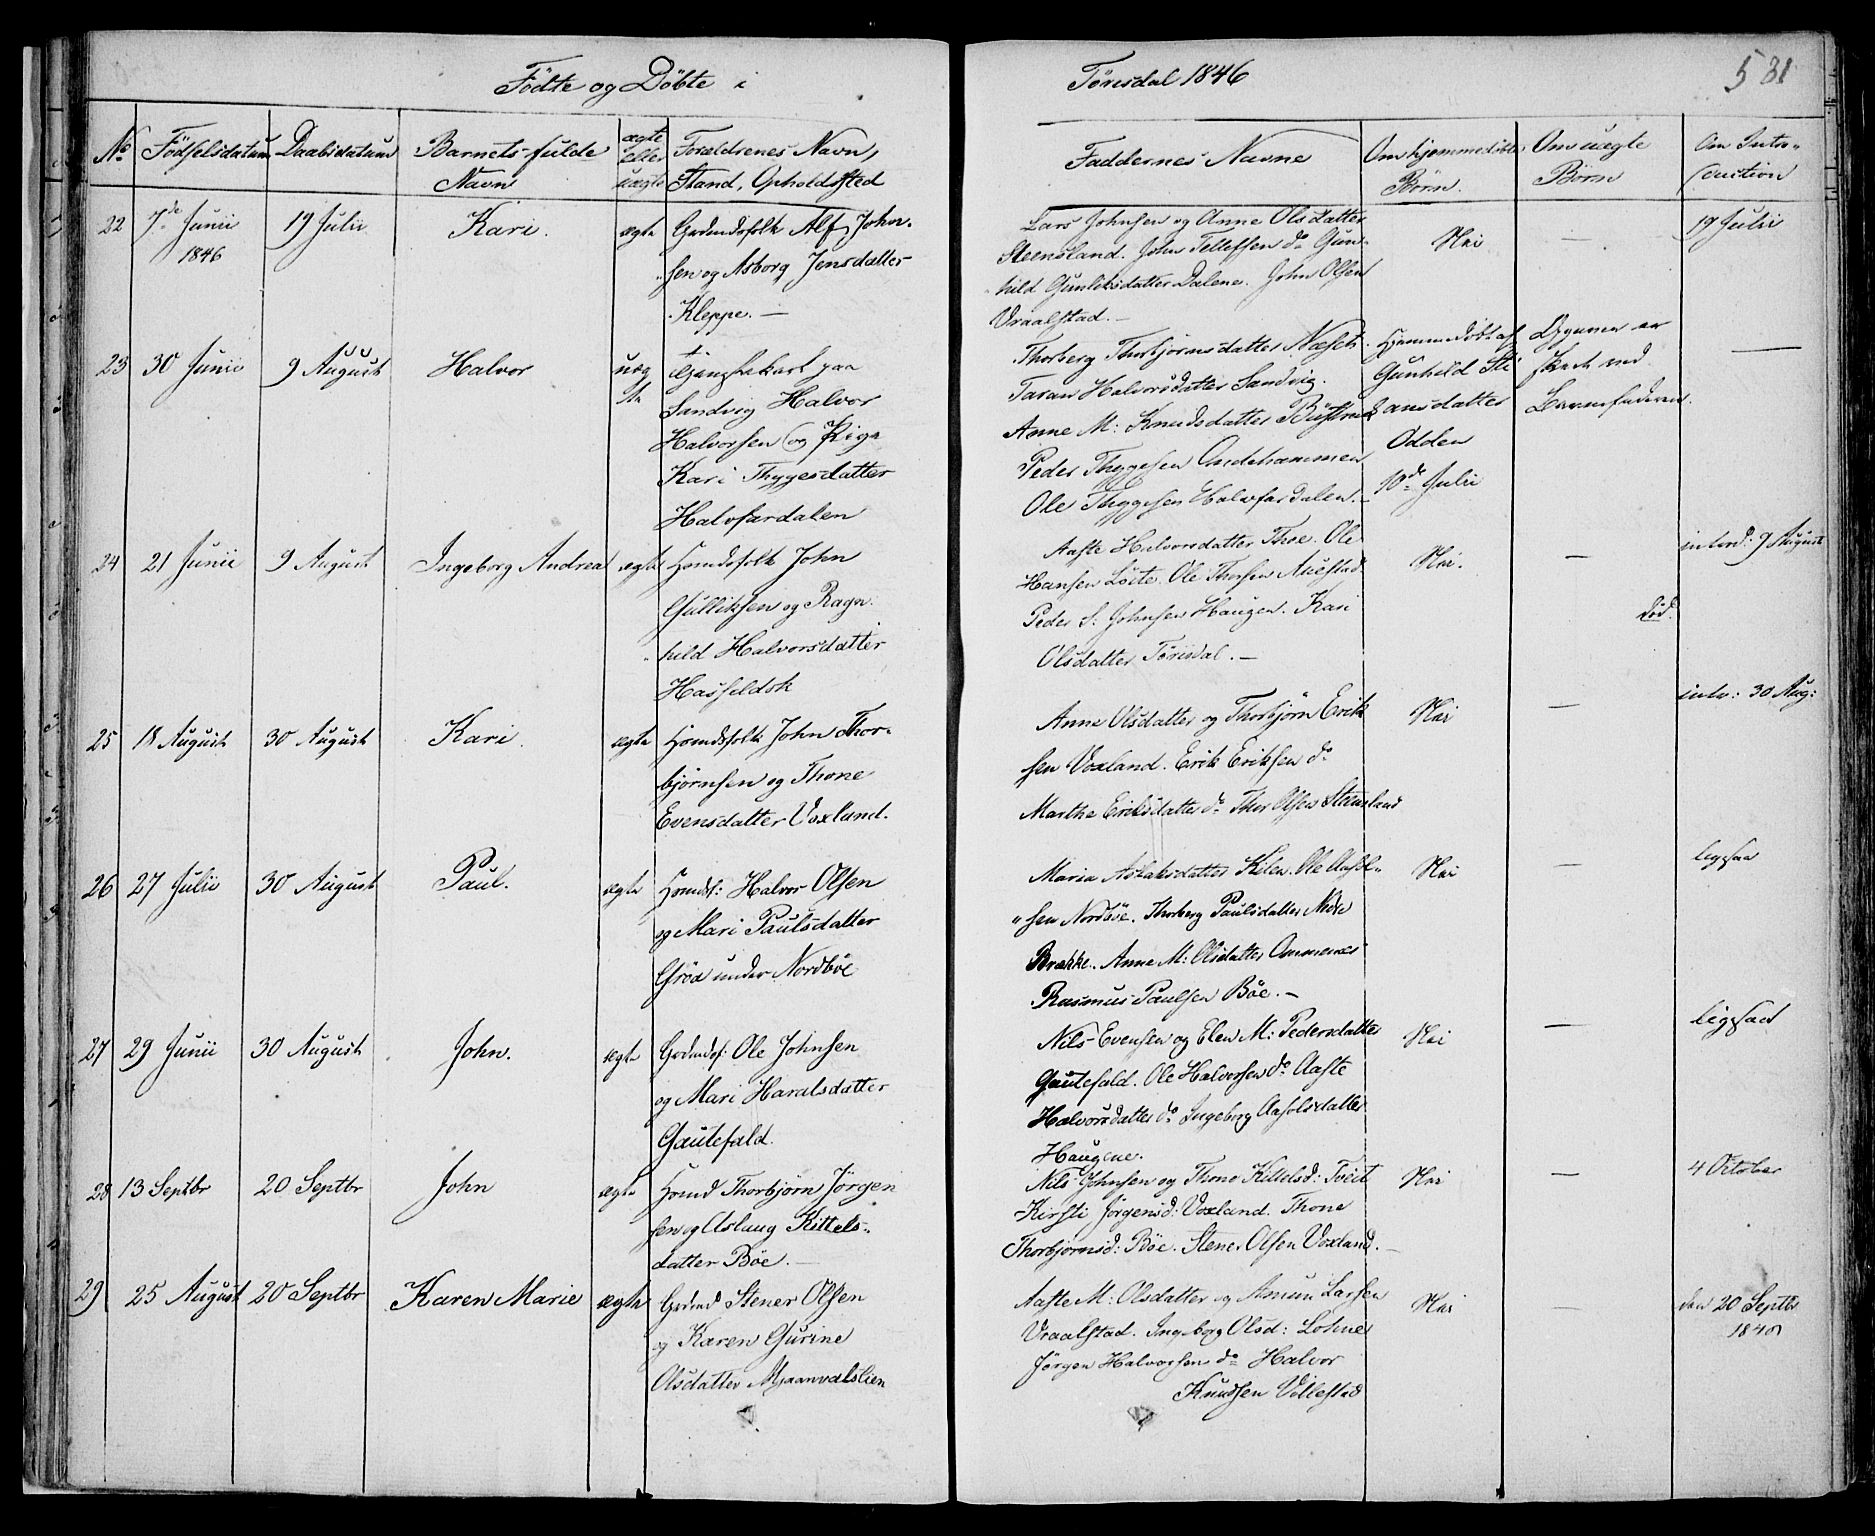 Födte og Döbte i Törisdal 1846
531
No Födselsdatum Daabsdatum Barnets fulde Navn ægte eller uægte Forældrenes Navn, Stand, Opholdssted Faddernes Navne Om hjemmedöbte Börn. Om uægte Börn Om Introduction
22 7de Junii 1846 19 Julii Kari. ægte Grdmdsfolk Alf John-
sen og Asborg Jensdatter
Kleppe. —
Lars Johnsen og Anne Olsdatter
Steensland. John Tellefsen do Gun-
hild Gunleksdatter Dalene. John Olsen
Vraalstad. —
Nei — 19 Julii
23 30 Junii 9 August Halvor uæg
te
Tjenestekarl paa
Sandvig Halvor
Halvorsen og Pige
Kari Thygesdatter
Halvfardalen
Thorberg Thorbjörnsdatter Næset.
Taran Halvorsdatter Sandvig.
Anne M: Knudsdatter
Peder Thygesen
Ole Thygesen Halvfardalen.
Hjemmedöbt af
Gunhild Sti
ansdatter
Odden
10de Julii
skeet ved
Barnefaderen.
—
24 21 Junii 9 August Ingeborg Andrea ægte Hsmdsfolk John
Gulliksen og Ragn-
hild Halvorsdatter
Hasfeldsk
Aaste Halvorsdatter Thoe. Ole
Hansen Löite. Ole Thorsen
Peder S: Johnsen Haugen. Kari
Olsdatter Törisdal. —
Nei. — introd: 9 August
död.
25 18 August 30 August Kari. ægte Hsmdsfolk John Thor-
björnsen og Thone
Evensdatter Voxland.
Anne Olsdatter og Thorbjörn Erik
sen Voxland. Erik Eriksen do
Marthe Eriksdatter do Thor Olsen Steensland
Nei — intr: 30 Aug:
26 27 Julii 30 August Paul. ægte Hsmdsf: Halvor Olsen
og Mari Paulsdatter
Gröa under Nordböe
Maria Aslaksdatter Kilen. Ole
sen Nordböe. Thorberg Paulsdatter Nedre
Brække. Anne M: Olsdatter Ommenæs
Rasmus Paulsen Böe. —
Nei — ligesaa
27 29 Junii 30 August John. ægte Grdmdsf: Ole Johnsen
og Mari Haralsdatter
Gautefald.
Nils Evensen og Elen M: Pedersdatter
Gautefald. Ole Halvorsen do Aaste
Halvorsdatter do Ingeborg Aasolsdatter
Haugene.
Nei — ligesaa
28 13 Septbr 20 Septbr John ægte Hsmd Thorbjörn Jörgen
sen og Aslaug Kittels-
datter Böe. —
Nils Johnsen og Thone Kittelsd: Tveit
Kirsti Jörgensd: Voxland. Thone
Thorbjörnsd: Böe. Stener Olsen Voxland. —
Nei — 4 October
29 25 August 20 Septbr Karen Marie ægte Grdmd Stener Olsen
og Karen Gurine
Olsdatter Mjaanvalslien
Aaste M: Olsdatter og Amun Larsen
Vraalstad. Ingeborg Olsd: Lohne
Jörgen Halvorsen do Halvor
Knudsen Vellestad
Nei — den 20 Septbr
1846